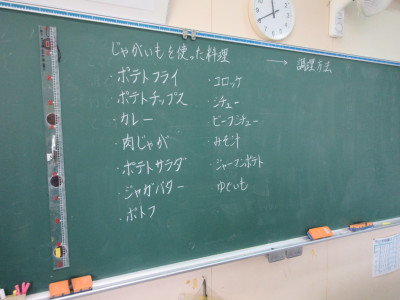 じゃがいもを使った料理 → 調理方法
・ポテトフライ
・ポテトチップス
・カレー
・肉じゃが
・ポテトサラダ
・ジャガバター
・ポトフ
・コロッケ
・シチュー
・ビーフシチュー
・みそ汁
・ジャーマンポテト
・ゆでいも